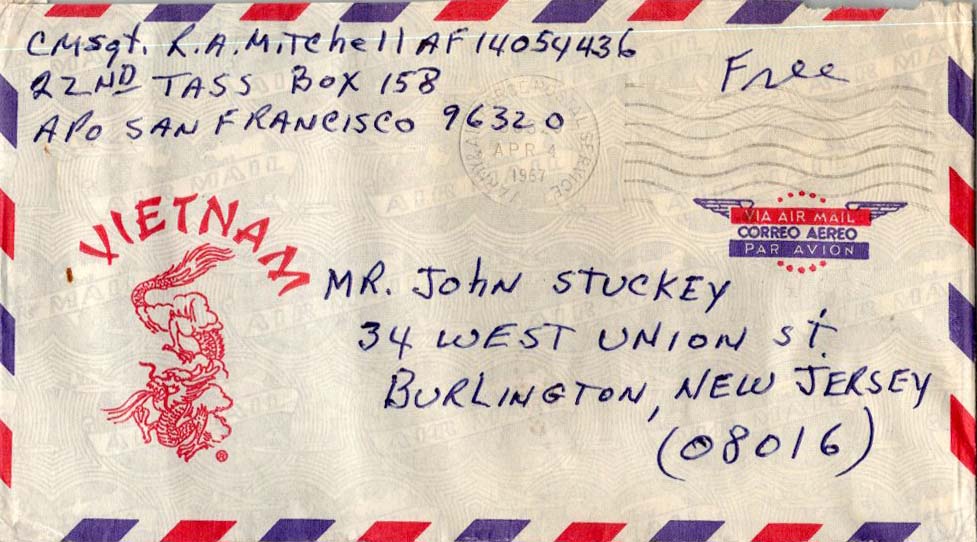 CMsgt. R.A. Mitchell AF14054436
22ND TASS BOX 158
APO SAN FRANCISCO 96320
Free
POSTAL SERVICE
APR 4
1967
VIA AIR MAIL
CORREO AEREO
PAR AVION
VIETNAM
®
MR. JOHN STUCKEY
34 WEST UNION St.
BURLINGTON, NEW JERSEY
(08016)